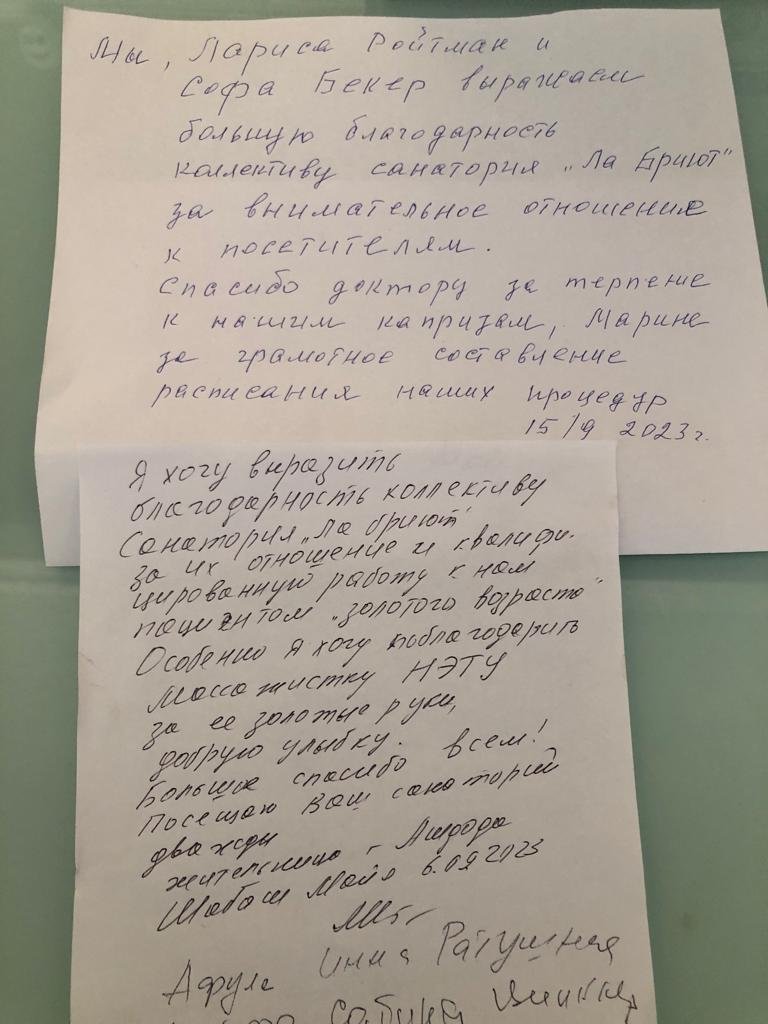 Мы, Лариса Ройтман и
Софа Бекер выражаем
большую благодарность
коллективу санатория „Ла Бриют"
за внимательное отношение
к посетителям.
Спасибо доктору за терпение
к нашим капризам, Марине
за грамотное составление
расписания наших процедур
15/9 2023г.
Я хочу выразить
благодарность коллективу
Санатория „Ла бриют"
за их отношение и квалифи-
цированную работу к нам
пациентам „золотого возраста"
Особенно я хочу поблагодарить
Массажистку НЭТУ
за ее золотые руки,
добрую улыбку.
Большие спасибо всем!
Посещаю Ваш санаторий
дважди
жительница г. Ашдода
Шабаш Майя 6.09 2023
Афула Инна Ратушная
Сабина